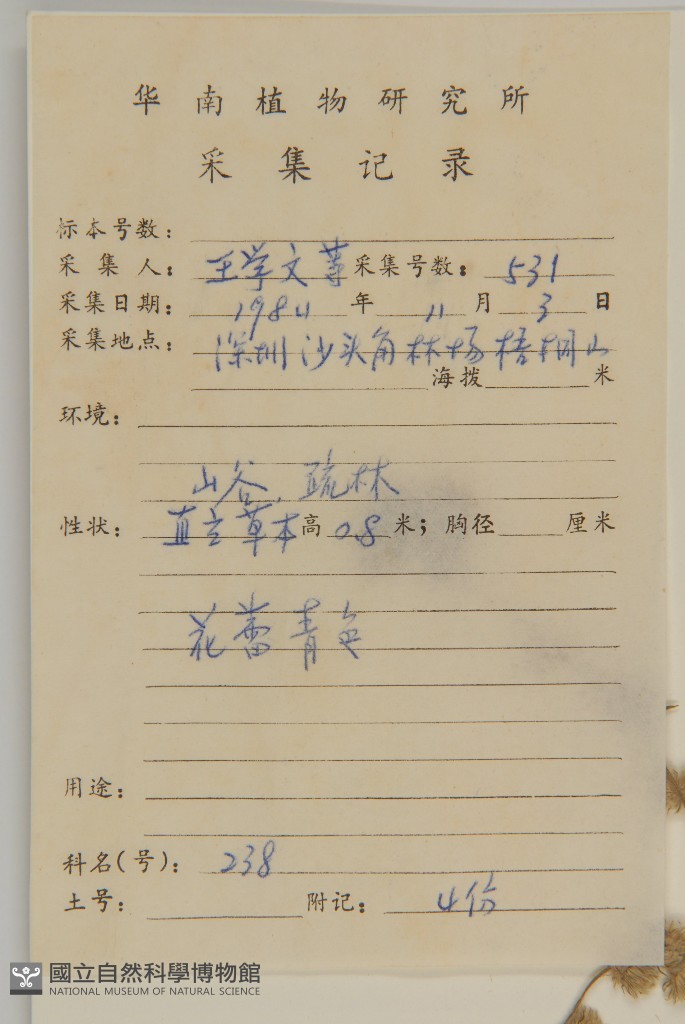 华南植物研究所
采集记录
标本号数：
采集人：王学文等采集号数：531
采集日期：1984年11月3日
采集地点：深圳沙头角林场梧桐山
海拨 米
环境：
山谷，疏林
性状：直立草本高0.8米；胸径 厘米
花蕾青色
用途：
科名(号)：238
土号： 附记：4份
國立自然科學博物館
NATIONAL MUSEUM OF NATURAL SCIENCE